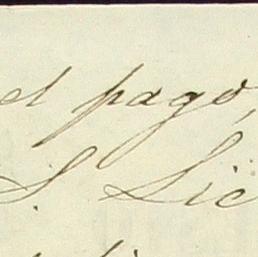 el pago,
S. Lic